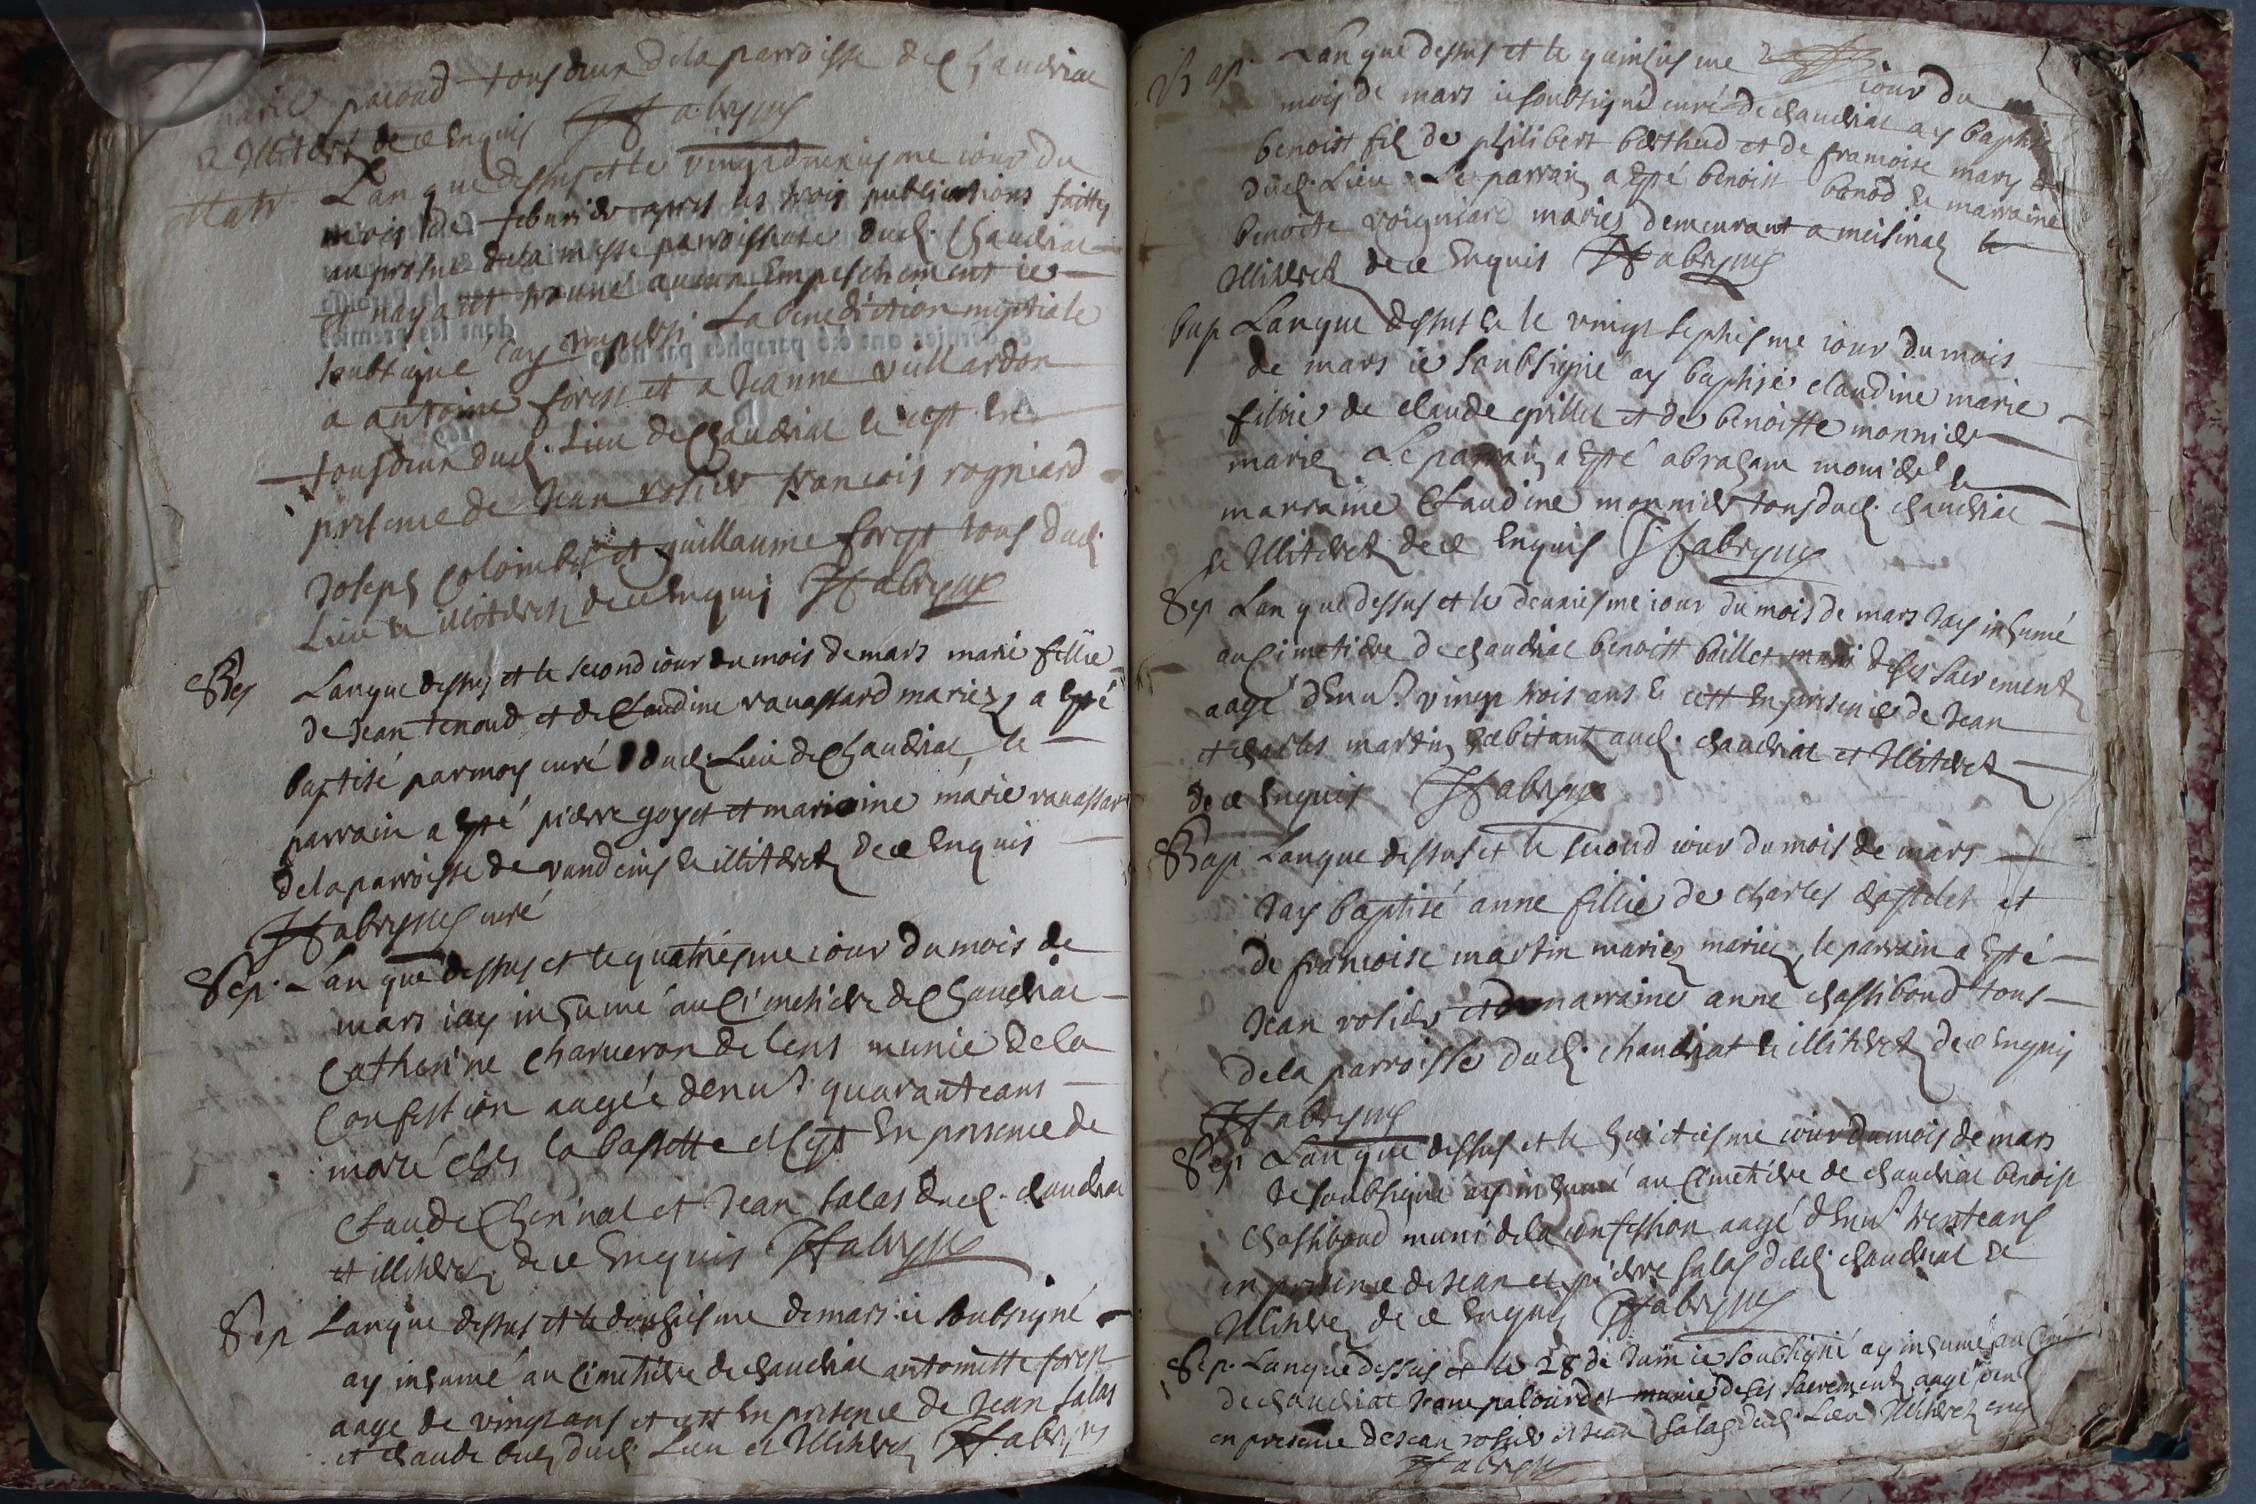 marie pacoud tous deux de la parroisse de Chaudriac
et illiterez de ce Enquis JFabrique
Mar. L'an que dessus et le vingtdeuxiesme iour du
mois de feburier apres les trois publications faittes
au prosne de la messe parroissiale dud. Chaudriac
et nayant trouué aucun Empeschement ie
soubsigné ay la benediction nuptiale
a antoine forest et a Jeanne vuillardon
tous deux dud. Lieu de Chaudriac et cest En
presence de Jean rosier francois rogniard
Joseph Colombet et guillaume forest tous dud.
Lieu et illiterez de ce Enquis JFabrique
Bap Lan que dessus et le second iour du mois de mars marie fillie
de Jean tenoud et de Claudine rauassard mariez, a esté
baptisé par moy curé dud. Lieu de Chaudriac, le
parrain a esté pierre goyet et marraine marie rauassard
de la parroisse de vandeins et illiterez de ce Enquis
JFabrique curé
Sep. Lan que dessus et le quatriesme iour du mois de
mars iay inhumé au Cimetiere de Chaudriac
Catherine charueron de lens munie de la
Confession aagée denu. quarante ans
morte ches la bassette et cest En presence de
Claude Chevinal et Jean Salas dud. chaudriac
et illiterez de ce Enquis JFabrique
Sep Lan que dessus et le douhsiesme de mars ie soubsigné
ay inhumé au Cimetiere de chaudriac antoinette forest
aage de vingt ans et cest En presence de Jean Salas
et Claude dud. Lieu et Illiterez JFabrique
Bap. Lan que dessus et le quinsiesme iour du
mois de mars ie soubsigné curé de chaudriac ay baptisé
benoist fils de philibert berthud et de francoise mariez
dud. Lieu. Le parrain a esté benoist benod et marraine
benoite rogniard mariez demeurant a meisiriat et
illiterez de ce Enquis JFabrique
bap Lan que dessus et le vingt septiesme iour du mois
de mars ie soubsigné ay baptisé claudine marie
fillie de claude grillet et de benoitte monnier
mariez Le parrain a esté abraham monier et
marraine Claudine monnier tous dud. chaudriac
et Illiterez de ce Enquis JFabrique
Sep Lan que dessus et le deuxiesme iour du mois de mars Jay inhumé
au Cimetiere de chaudriac benoist paillet muni de ses Sacrements
aagé denu. vingt trois ans et cest En presence de Jean
et charles martin habitants aud. chaudriac et Illiterez
de ce Enquis JFabrique
Bap Lan que dessus et le second iour du mois de mars
Jay baptisé anne fillie de charles chastelet et
de francoise martin mariez mariez, le parrain a esté
Jean rosier et marraine anne chastiboud tous
de la parroisse dud. chaudriat et illiterez de ce Enquis
JFabrique
Sep Lan que dessus et le huictiesme iour du mois de mars
Je soubsigné ay inhumé au Cimetiere de chaudriac benoist
Chastiboud muni de la confession aagé denu. trente ans
en presence de Jean et pierre Salas dud. chaudriac et
Illiterez de ce Enquis JFabrique
Sep. Lan que dessus et le 28 de Juin ie soubsigné ay inhumé au Cime
de chaudriat Jeane palourdet munie de ses Sacrements aagé
en presence de Jean rosier et Jean Salas dud. Lieu Illiterez
JFabrique